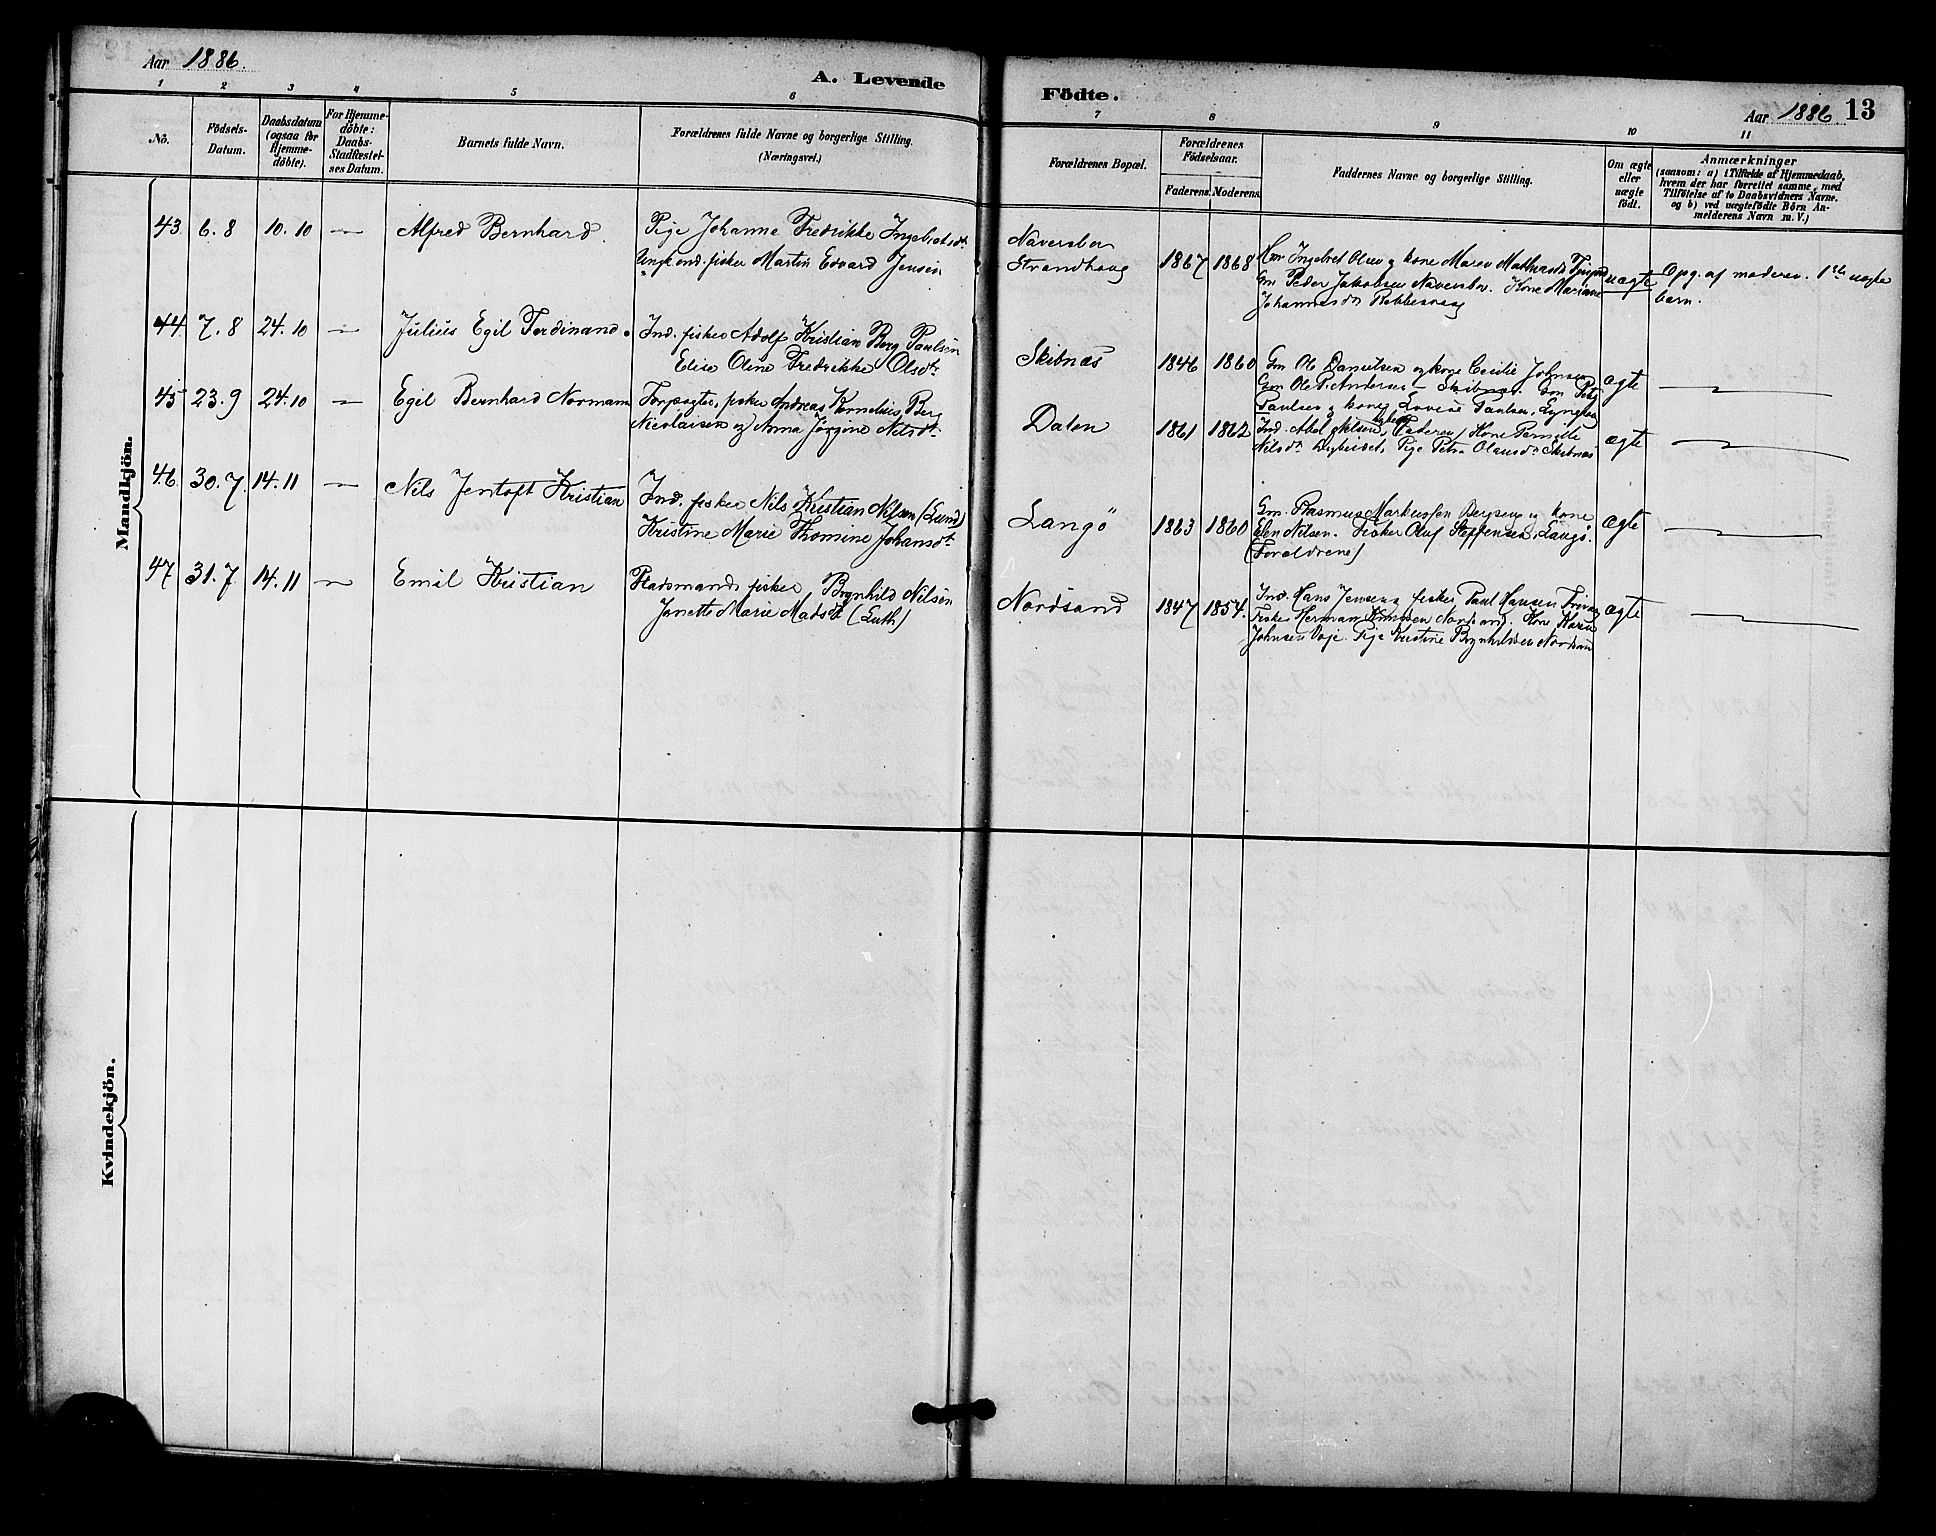 Aar 1886.
A. Levende
Födte.
Aar 1886
13
1 2 3 4 5 6 7 8 9 10 11
No.
Födsels-
Datum.
Daabsdatum
(ogsaa for
Hjemme-
döbte).
For Hjemme-
döbte:
Daabs-
Stadfæstel-
ses Datum.
Barnets fulde Navn.
Forældrenes fulde Navne og borgerlige Stilling.
(Næringsvei.)
Forældrenes Bopæl.
Forældrenes
Födselsaar.
Faderens. Moderens.
Faddernes Navne og borgerlige Stilling.
Om ægte
eller
uægte
födt.
Anmærkninger
(saasom: a) i Tilfælde af Hjemmedaab,
hvem der har forrettet samme, med
Tilföielse af to Daabsvidners Navne.
og b) ved uægtefödte Börn An-
melderens Navn m. V.)
Mandkjön.
43. 6. 8 10. 10 — Alfred Bernhard.
Pige Johanne Fredrikke Ingebretsdt.
Ungk. ind. fisker Martin Edvard Jensen
Naversbor
Strandhaug
1867 1868
Ingebret Olsen og kone Maren
Gm Peder Jakobsen Naversbor. Kone Mariane
Johannesdt.
uægte
Opg. af moderen. 1ste uægte
barn.
44. 7. 8 24. 10 — Julius Egil Ferdinand.
Ind. fisker Adolf Kristian Berg Paulsen
Elise Oline Fredrikke Olsdt.
Skibnæs
1846 1860
Gm Ole Danielsen og kone Cecilie Johnsen
Gm Ole P. Andersen — Skibnæs. Gm
Paulsen og kone Lovise Paulsen,
ægte —
45 23. 9 24. 10 — Egil Bernhard Normann
Forpagter, fisker Andreas Kornelius Berg
Nicolaisen og Anna Jörgine Nilsdt.
Dalen
1861 1862
Ind. Abel Nilsen, Faderen, Kone Pernille
Nilsdt. Pige Petra Olausdt. Skibnæs
ægte —
46. 30. 7. 14. 11 — Nils Jentoft Kristian
Ind. fisker Nils Kristian Nilsen (Lund)
Kristine Marie Thomine Johansdt.
Langö
1863 1860
Gm. Rasmus Markussen Bergseng og kone
Elen Nilsen. Fisker Oluf Steffensen, Langö.
(Forældrene)
ægte —
47 31. 7 14. 11 — Emil Kristian
Pladsmand, fisker, Brynhild Nilsen
Janette Marie Madsdt. (Luth)
Nordsand
1847 1854.
Ind. Hans Jensen, fisker Paul Hansen
Fisker Herman Knudsen Nordsand. Kone Karen
Johnsen Voje. Pige Kristine Brynhildsen Nordsand
ægte —
Kvindekjön.